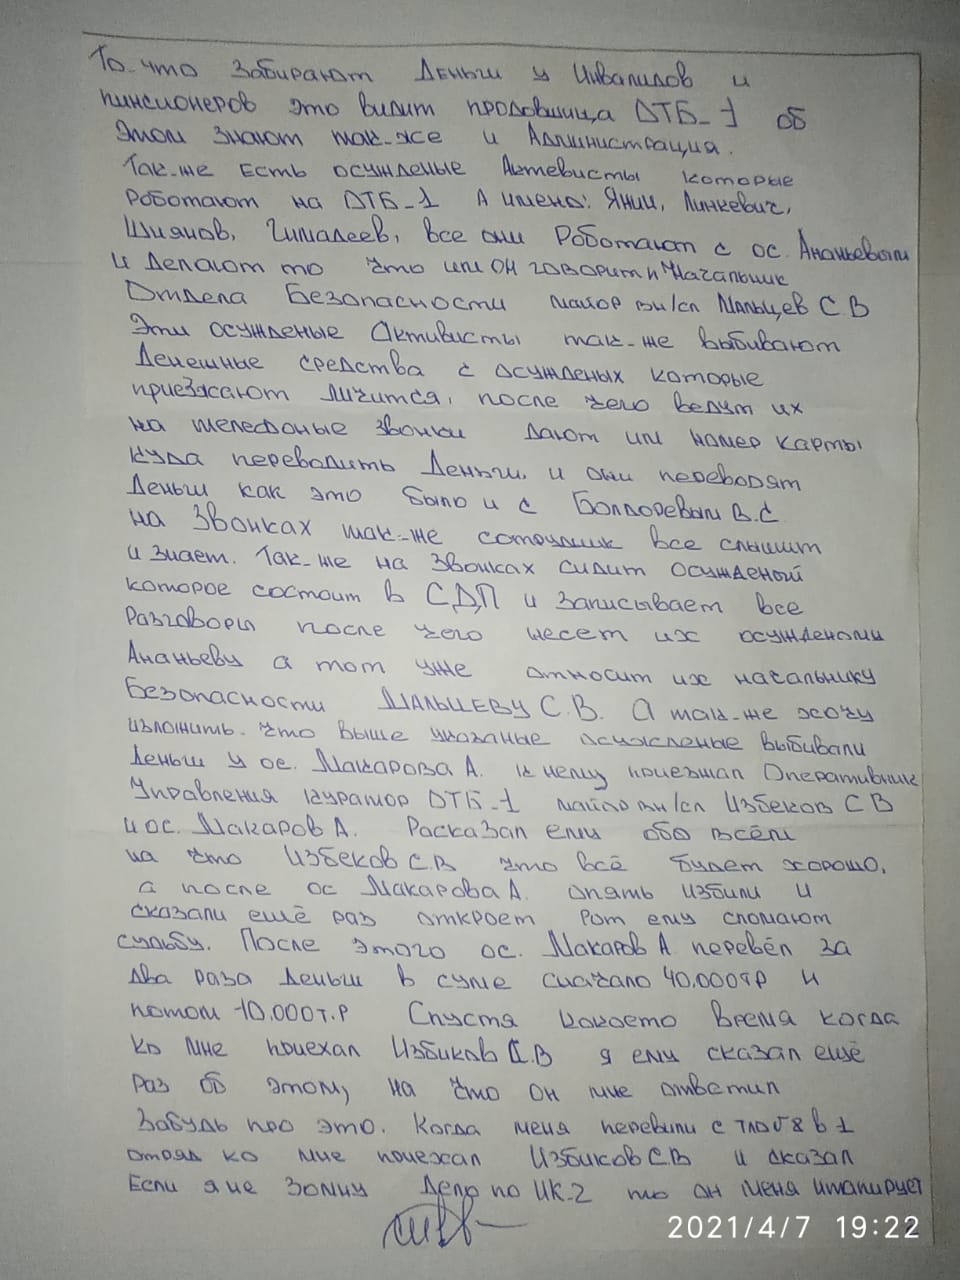 То-что забирают Деньги у Инвалидов и
пинсионеров это видит продовщица ОТБ-1 об
этом знают так-же и Администрация.
Так-же Есть осужденые Активисты которые
Роботают на ОТБ-1 А имено: Янин, Линкевич,
Шиянов, Гималеев, все они Роботают с ос. Ананьевым
и делают то что им он говорит и Начальник
Отдела Безопасности майор вн/сл Мальцев С.В
Эти осужденые Активисты так-же выбивают
Денешные средства с осужденых которые
приезжают личится, после чего ведут их
на телефоные звонки дают им номер карты
куда переводить Деньги, и они переводят
Деньги как это было и с Болдоревым В.С
на Звонках так-же сотрудник все слышит
и знает. Так-же на Звонках сидит осужденый
которое состоит в СДП и записывает все
Разговоры после чего несет их осужденому
Ананьеву а тот уже относит их начальнику
Безопасности МАЛЬЦЕВУ С.В. А так-же хочу
изложить что выше указаные осужденые выбивали
Деньги у ос. Макарова А. к нему приезжал Оперативник
Управления куратор ОТБ-1 майор вн/сл Избеков С В
и ос. Макаров А. Расказал ему обо всём
на что Избеков С.В что всё будет хорошо,
а после ос Макарова А. опять избили и
сказали ещё раз откроет Рот ему сломают
судьбу. После этого ос. Макаров А перевёл за
Два раза Деньги в суме сначало 40.000тР и
потом 10.000т.Р Спустя какоето Время когда
ко мне приехал Избиков С.В я ему сказал ещё
Раз об этом, на что он мне ответил
Забудь про это. Когда меня перевили с 8 в 1
отряд ко мне приехал Избиков С.В и сказал
Если я не Зомну Дело по ИК-2 то он меня
2021/4/7 19:22